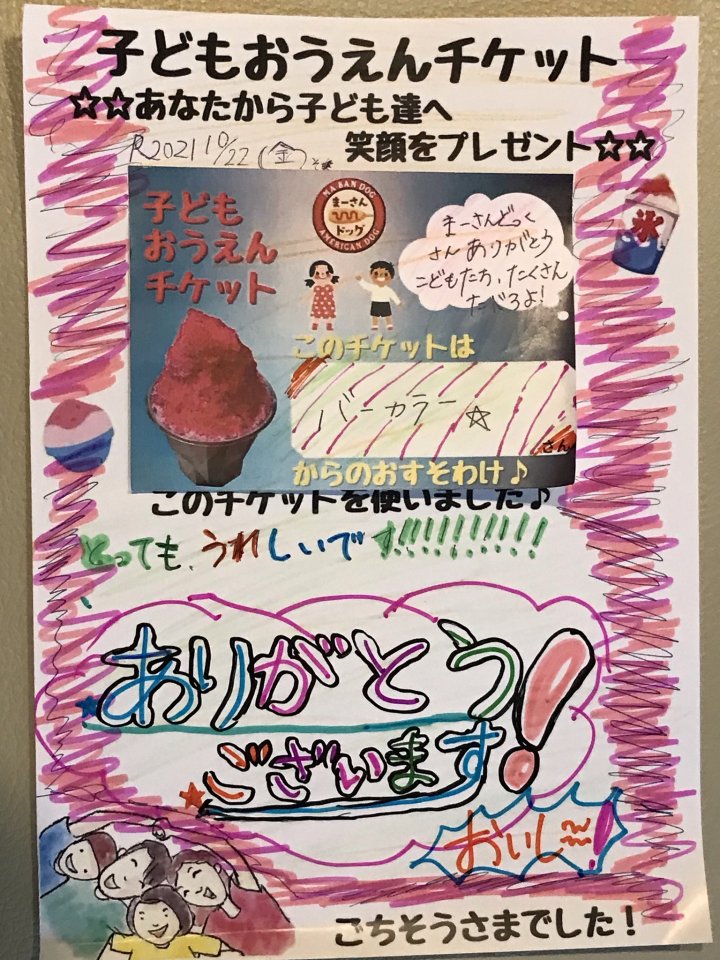 子どもおうえんチケット
☆☆あなたから子ども達へ
笑顔をプレゼント☆☆
R2021 10/22(金)
子ども
おうえん
チケット
MA SAN DOG
まーさん
ドッグ
AMERICAN DOG
まーさんどっく
さんありがとう
こどもたち、たくさん
たべろよ!
このチケットは
バーカラー☆
さん
からのおすそわけ♪
このチケットを使いました♪
とっても、うれしいです!!!!!!!!!!
ありがとう
ございます!
おいし〜!
ごちそうさまでした!
氷